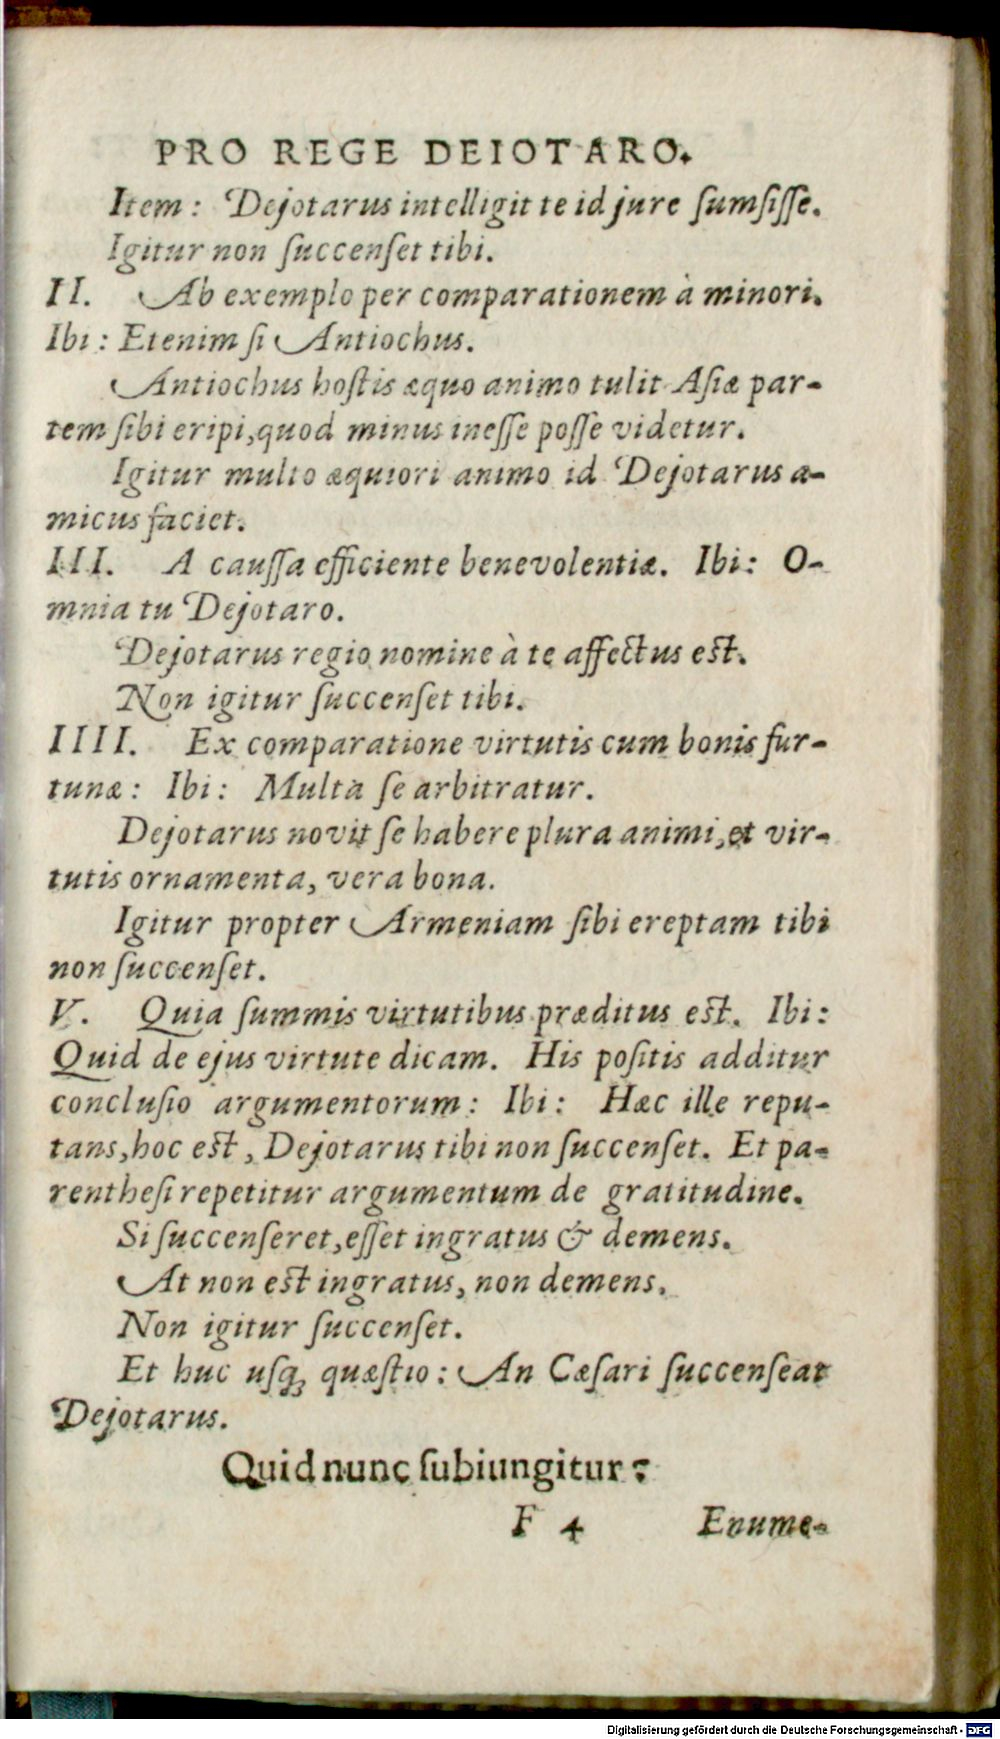 PRO REGE DEIOTARO.
Item: Dejotarus intelligit te id jure ſumſiſſe.
Igitur non ſuccenſet tibi.
II. Ab exemplo per comparationem à minori.
Ibi: Etenim ſi Antiochus.
Antiochus hoſtis æquo animo tulit Aſiæ par-
tem ſibi eripi, quod minus ineſſe poſſe videtur.
Igitur multo æquiori animo id Dejotarus a-
micus faciet.
III. A cauſſa efficiente benevolentiæ. Ibi: O-
mnia tu Dejotaro.
Dejotarus regio nomine à te affectus eſt.
Non igitur ſuccenſet tibi.
IIII. Ex comparatione virtutis cum bonis fur-
tunæ: Ibi: Multa ſe arbitratur.
Dejotarus novit ſe habere plura animi, et vir-
tutis ornamenta, vera bona.
Igitur propter Armeniam ſibi ereptam tibi
non ſuccenſet.
V. Quia ſummis virtutibus præditus eſt. Ibi:
Quid de ejus virtute dicam. His poſitis additur
concluſio argumentorum: Ibi: Hæc ille repu-
tans, hoc eſt, Dejotarus tibi non ſuccenſet. Et pa-
rentheſi repetitur argumentum de gratitudine.
Si ſuccenſeret, eſſet ingratus & demens.
At non eſt ingratus, non demens.
Non igitur ſuccenſet.
Et huc uſq; quæſtio: An Cæſari ſuccenſeat
Dejotarus.
Quid nunc ſubiungitur?
F 4 Enume-
Digitalisierung gefördert durch die Deutsche Forschungsgemeinschaft - DFG